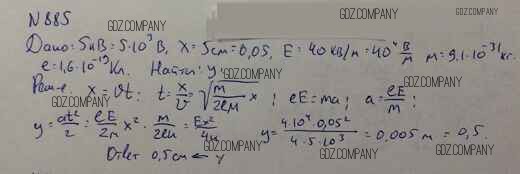 N 885
GDZ.COMPANY GDZ.COMPANY
Дано: 5кВ = 5·10³ В, X = 5см = 0,05, E = 40 кВ/м = 40⁴ В/м m = 9,1·10⁻³¹ кг.
e = 1,6·10⁻¹⁹ Кл. Найти: y
GDZ.COMPANY
Реше-е. x = vt; t = x/v = √(m/2eu) x ; eE = ma; a = eE/m ;
GDZ.COMPANY
y = at²/2 = eE/2m x² · m/2eu = Ex²/4u y = 4·10⁴·0,05²/4·5·10³ = 0,005 м = 0,5.
GDZ.COMPANY GDZ.COMPANY GDZ.COMPANY
Ответ 0,5см ← y